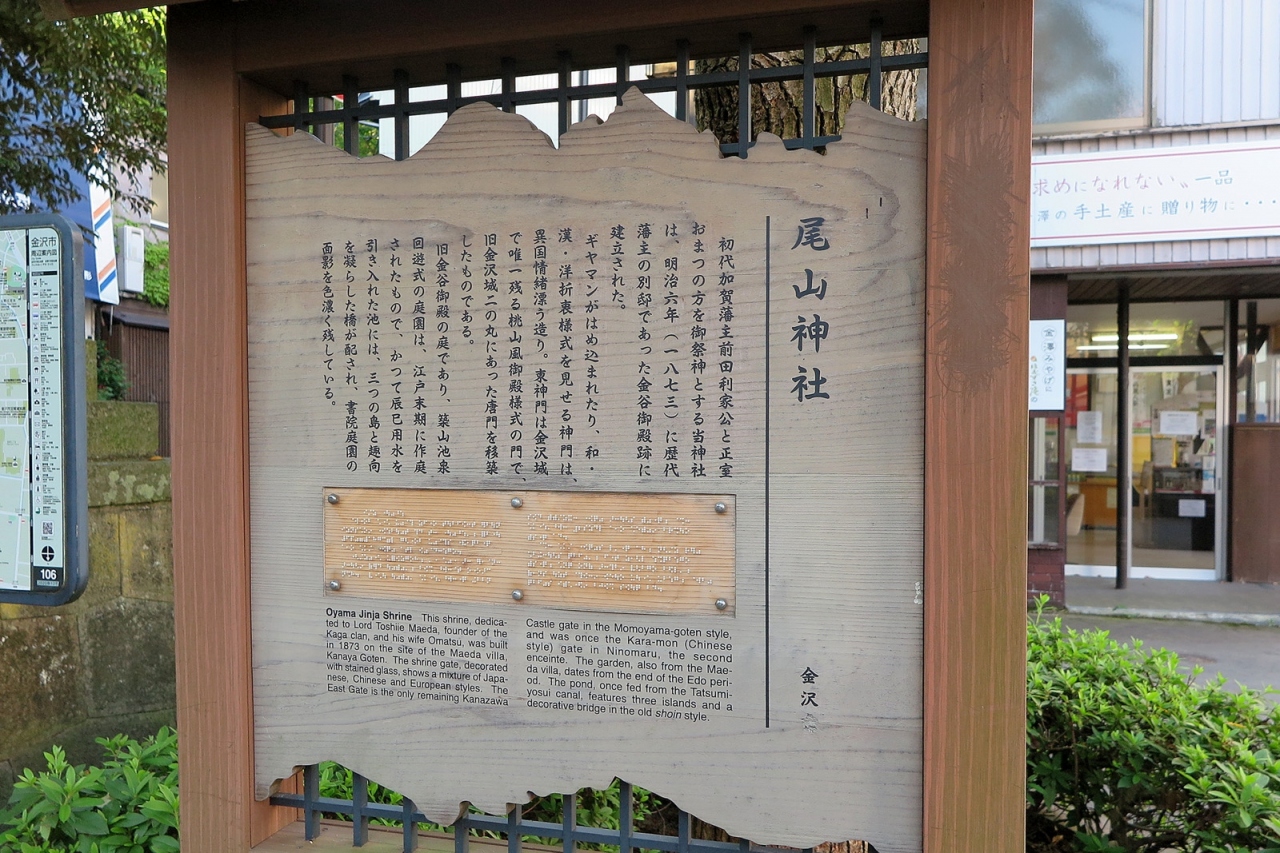 尾山神社
初代加賀藩主前田利家公と正室
おまつの方を御祭神とする当神社
は、明治六年（一八七三）に歴代
藩主の別邸であった金谷御殿跡に
建立された。
ギヤマンがはめ込まれたり、和・
漢・洋折衷様式を見せる神門は、
異国情緒漂う造り。東神門は金沢城
で唯一残る桃山風御殿様式の門で、
旧金沢城二の丸にあった唐門を移築
したものである。
旧金谷御殿の庭であり、築山池泉
回遊式の庭園は、江戸末期に作庭
されたもので、かつて辰巳用水を
引き入れた池には、三つの島と趣向
を凝らした橋が配され、書院庭園の
面影を色濃く残している。
金沢
Oyama Jinja Shrine This shrine, dedica-
ted to Lord Toshiie Maeda, founder of the
Kaga clan, and his wife Omatsu, was built
in 1873 on the site of the Maeda villa,
Kanaya Goten. The shrine gate, decorated
with stained glass, shows a mixture of Japa-
nese, Chinese and European styles. The
East Gate is the only remaining Kanazawa
Castle gate in the Momoyama-goten style,
and was once the Kara-mon (Chinese
style) gate in Ninomaru, the second
enceinte. The garden, also from the Mae-
da villa, dates from the end of the Edo peri-
od. The pond, once fed from the Tatsumi-
yosui canal, features three islands and a
decorative bridge in the old shoin style.
金沢市
周辺案内図
106
求めになれない〟一品
澤の手土産に贈り物に・・・・